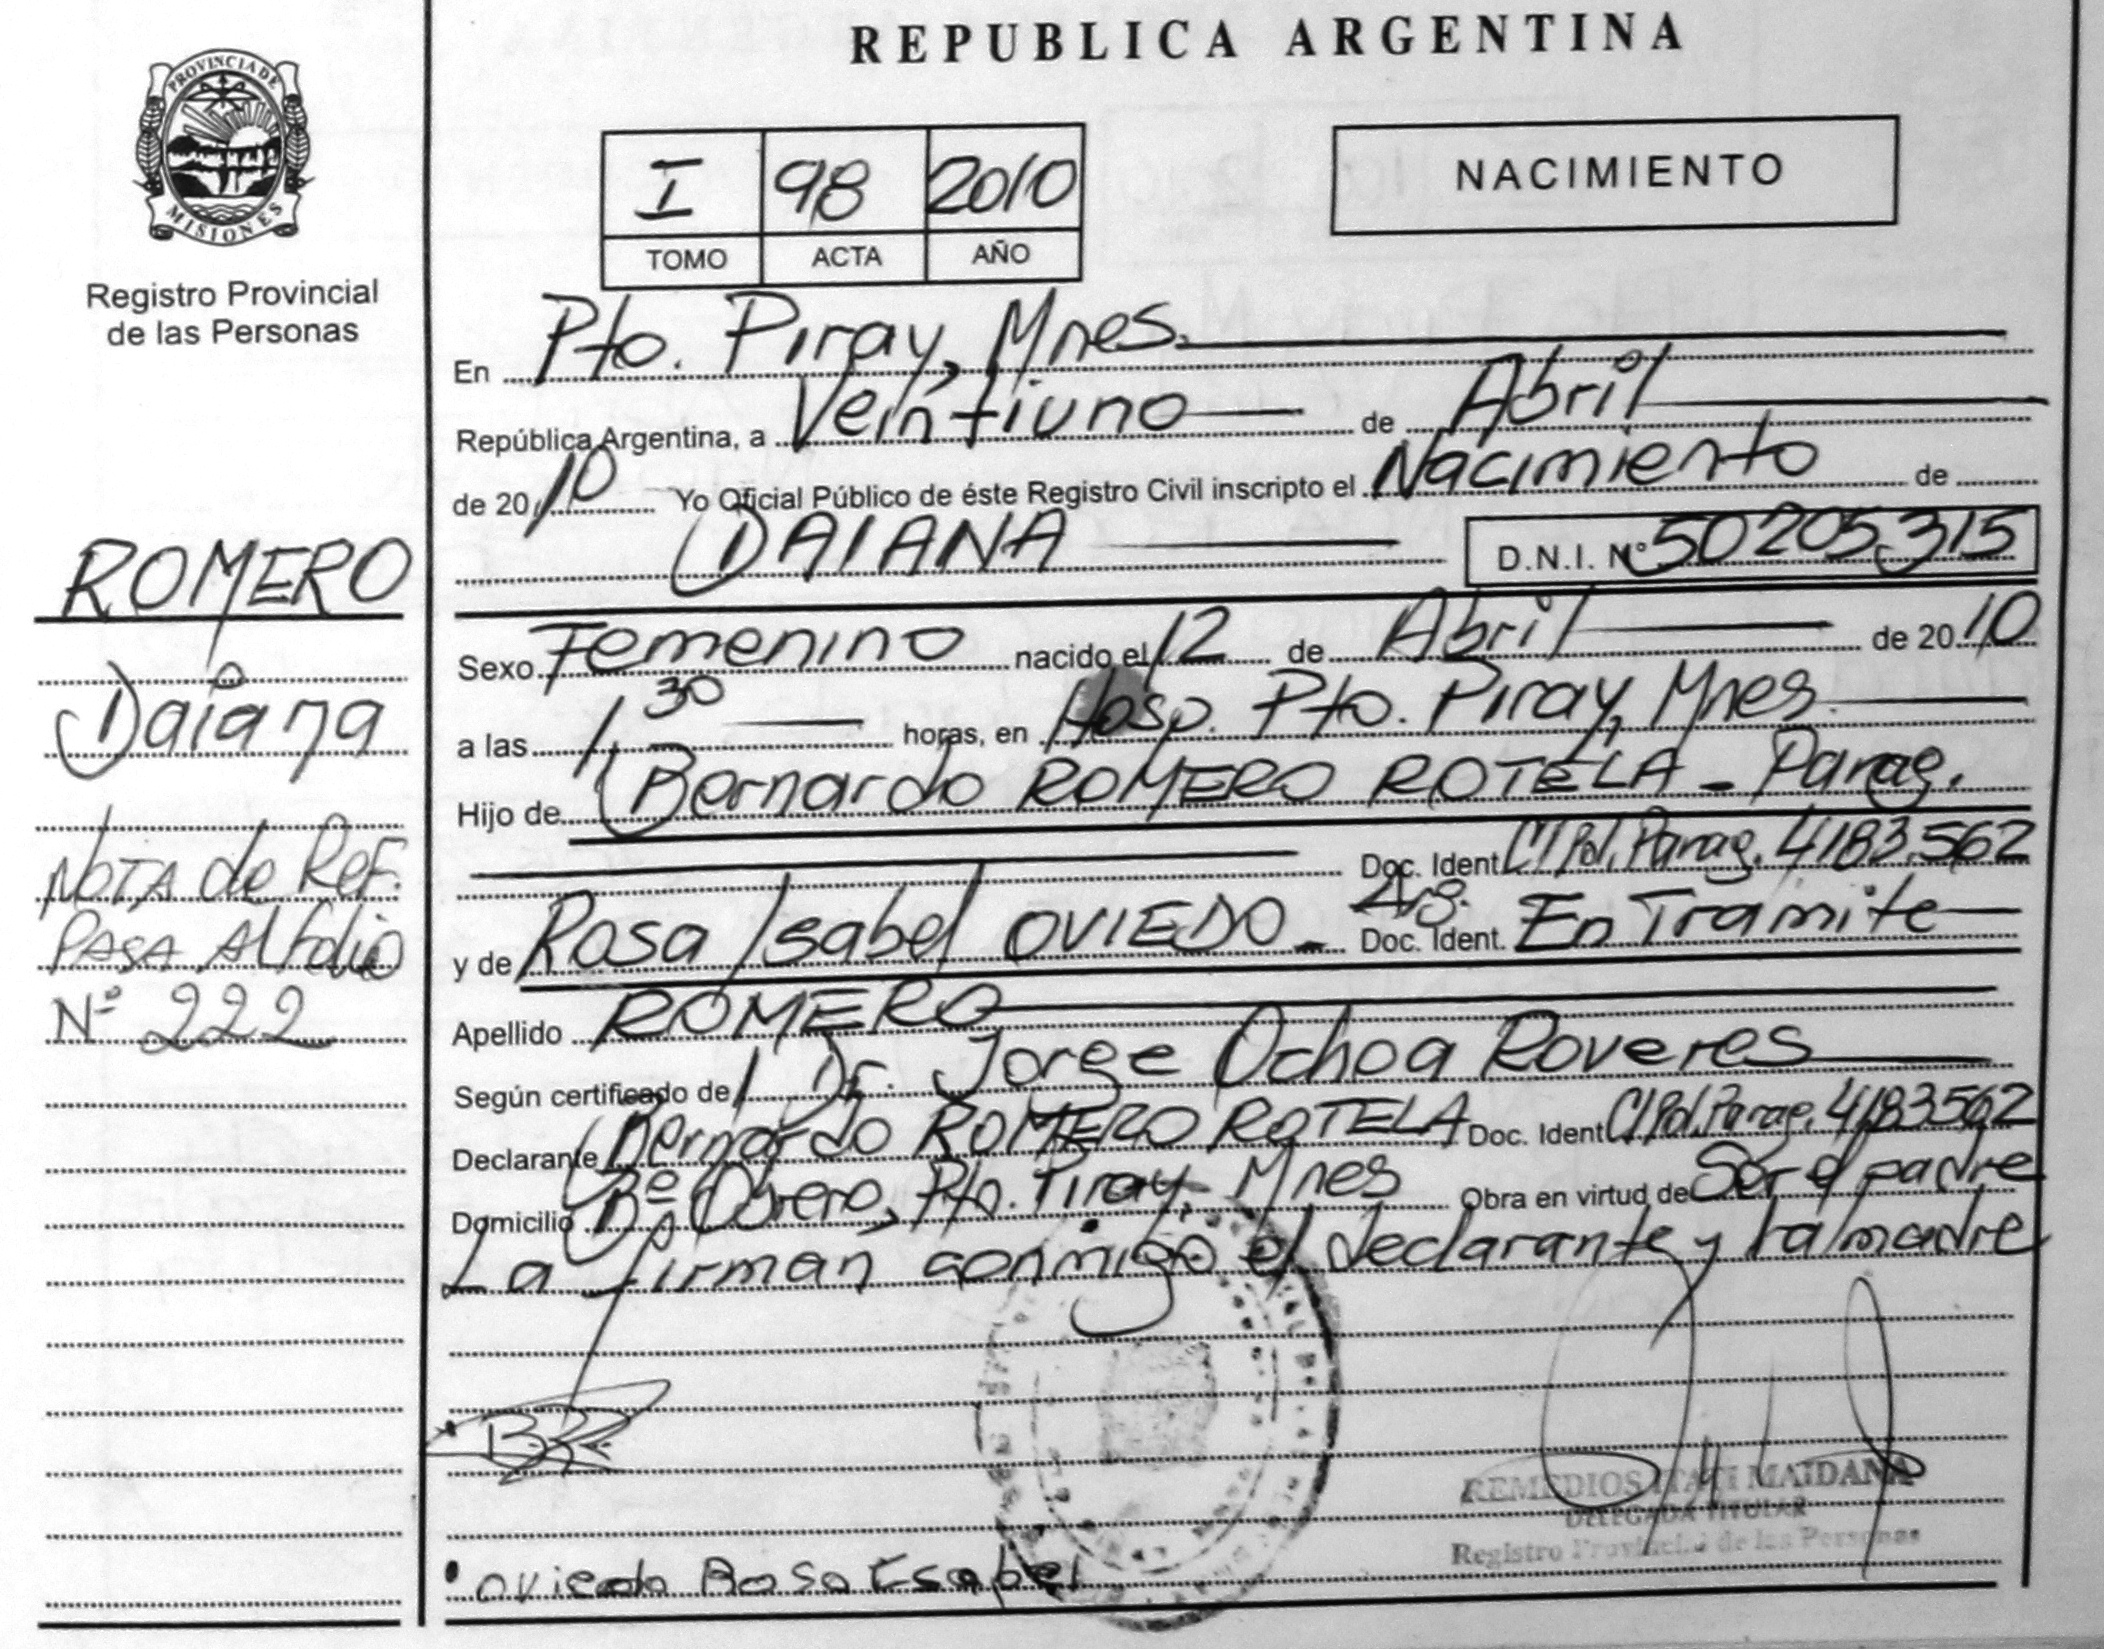 REPUBLICA ARGENTINA
PROVINCIA DE
MISIONES
Registro Provincial
de las Personas
I 98 2010
TOMO ACTA AÑO
NACIMIENTO
En Pto. Piray, Mnes.
República Argentina, a Veintiuno de Abril
de 2010 Yo Oficial Público de éste Registro Civil inscripto el Nacimiento de
DAIANA D.N.I. Nº 50205.315
ROMERO
Daiana
NOTA de Ref.
PASA Al folio
Nº 222
Sexo Femenino nacido el 12 de Abril de 2010
a las 1,30 horas, en Hosp. Pto. Piray, Mnes.
Hijo de Bernardo ROMERO ROTELA - Parag.
Doc. Ident CI Pol. Parag. 4183.562
Arg.
y de Rosa Isabel OVIEDO - Doc. Ident. En Tramite
Apellido ROMERO
Según certificado de Dr. Jorge Ochoa Roveres
Declarante Bernardo ROMERO ROTELA Doc. Ident CI Pol. Parag. 4183562
Domicilio Bº Obrero, Pto. Piray, Mnes Obra en virtud de Ser el padre
La firman conmigo el declarante y la madre
REMEDIOS ITATI MAIDANA
DELEGADA TITULAR
Registro Provincial de las Personas
Oviedo Rosa Esabel